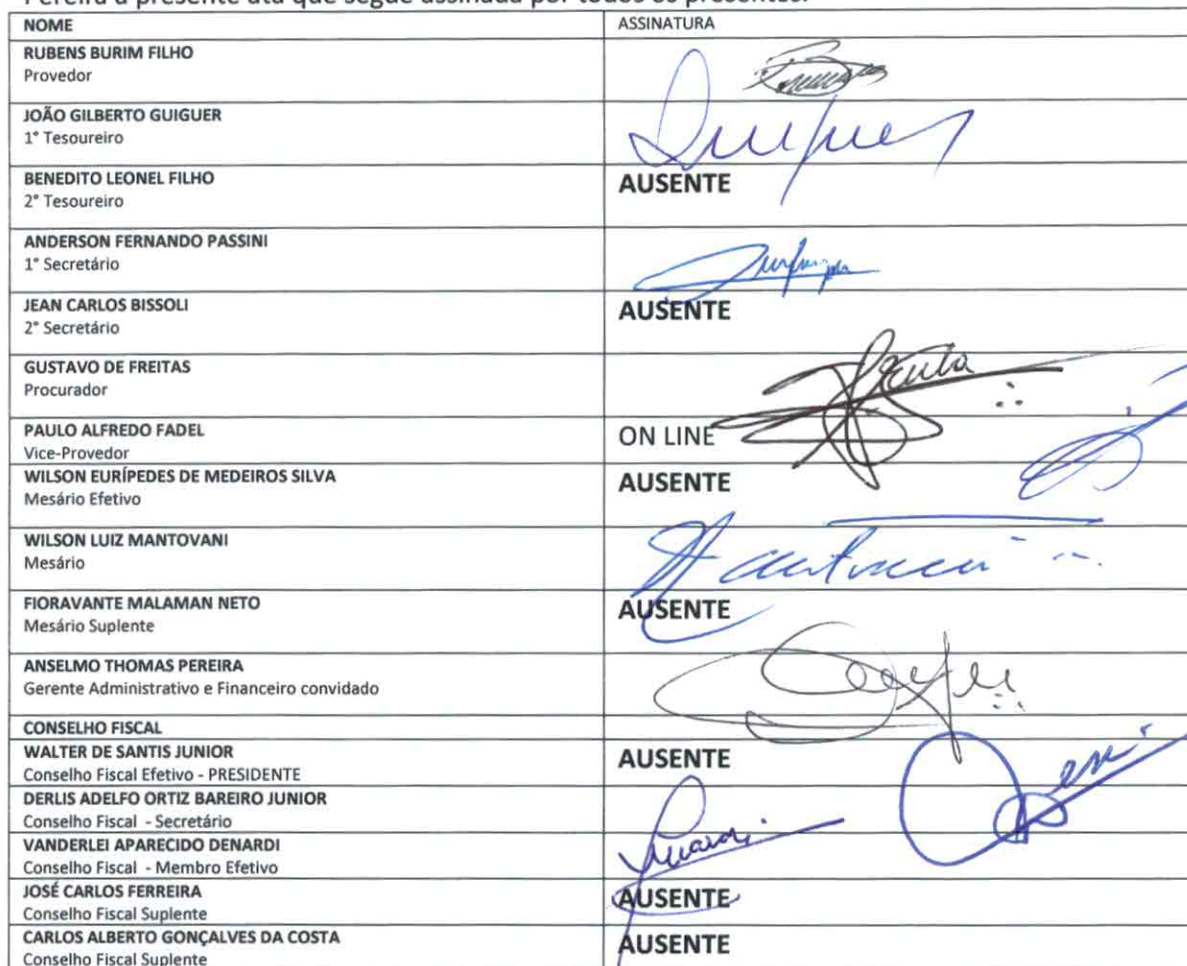 Pereira a presente ata que segue assinada por todos os presentes.
NOME ASSINATURA
RUBENS BURIM FILHO
Provedor
JOÃO GILBERTO GUIGUER
1° Tesoureiro
BENEDITO LEONEL FILHO AUSENTE
2° Tesoureiro
ANDERSON FERNANDO PASSINI
1° Secretário
JEAN CARLOS BISSOLI AUSENTE
2° Secretário
GUSTAVO DE FREITAS
Procurador
PAULO ALFREDO FADEL ON LINE
Vice-Provedor
WILSON EURÍPEDES DE MEDEIROS SILVA AUSENTE
Mesário Efetivo
WILSON LUIZ MANTOVANI
Mesário
FIORAVANTE MALAMAN NETO AUSENTE
Mesário Suplente
ANSELMO THOMAS PEREIRA
Gerente Administrativo e Financeiro convidado
CONSELHO FISCAL
WALTER DE SANTIS JUNIOR AUSENTE
Conselho Fiscal Efetivo - PRESIDENTE
DERLIS ADELFO ORTIZ BAREIRO JUNIOR
Conselho Fiscal - Secretário
VANDERLEI APARECIDO DENARDI
Conselho Fiscal - Membro Efetivo
JOSÉ CARLOS FERREIRA AUSENTE
Conselho Fiscal Suplente
CARLOS ALBERTO GONÇALVES DA COSTA AUSENTE
Conselho Fiscal Suplente